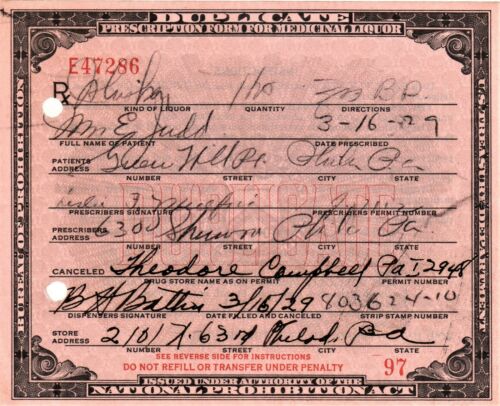 DUPLICATE
PRESCRIPTION FORM FOR MEDICINAL LIQUOR
E47286
Rx
KIND OF LIQUOR QUANTITY DIRECTIONS
Wm E Judd 3-16-29
FULL NAME OF PATIENT DATE PRESCRIBED
PATIENTS ADDRESS Phila Pa
NUMBER STREET CITY STATE
PRESCRIBERS SIGNATURE PRESCRIBERS PERMIT NUMBER
PRESCRIBERS ADDRESS 6300 Phila Pa
NUMBER STREET CITY STATE
CANCELED Theodore Campbell Pa I 2948
DRUG STORE NAME AS ON PERMIT PERMIT NUMBER
3/15/29 403624-10
DISPENSERS SIGNATURE DATE FILLED AND CANCELED STRIP STAMP NUMBER
STORE ADDRESS 2101 N. 63rd Philad. Pa
NUMBER STREET CITY STATE
SEE REVERSE SIDE FOR INSTRUCTIONS
DO NOT REFILL OR TRANSFER UNDER PENALTY 97
ISSUED UNDER AUTHORITY OF THE
NATIONAL PROHIBITION ACT
BUREAU OF PROHIBITION
U.S. TREASURY DEPARTMENT
DUPLICATE